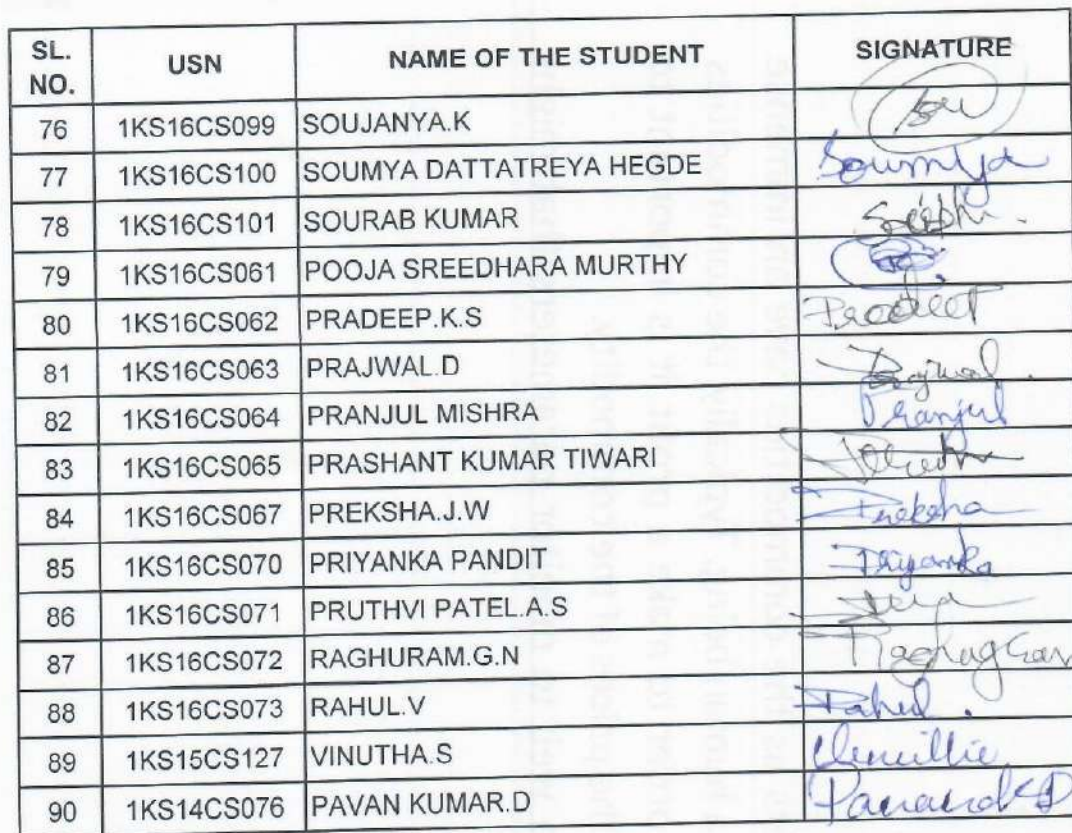 SL. NO. USN NAME OF THE STUDENT SIGNATURE
76 1KS16CS099 SOUJANYA.K Sou
77 1KS16CS100 SOUMYA DATTATREYA HEGDE Soumya
78 1KS16CS101 SOURAB KUMAR
79 1KS16CS061 POOJA SREEDHARA MURTHY
80 1KS16CS062 PRADEEP.K.S Pradeep
81 1KS16CS063 PRAJWAL.D Prajwal.
82 1KS16CS064 PRANJUL MISHRA Pranjul
83 1KS16CS065 PRASHANT KUMAR TIWARI
84 1KS16CS067 PREKSHA.J.W Preksha
85 1KS16CS070 PRIYANKA PANDIT Priyanka
86 1KS16CS071 PRUTHVI PATEL.A.S
87 1KS16CS072 RAGHURAM.G.N
88 1KS16CS073 RAHUL.V Rahul.
89 1KS15CS127 VINUTHA.S
90 1KS14CS076 PAVAN KUMAR.D